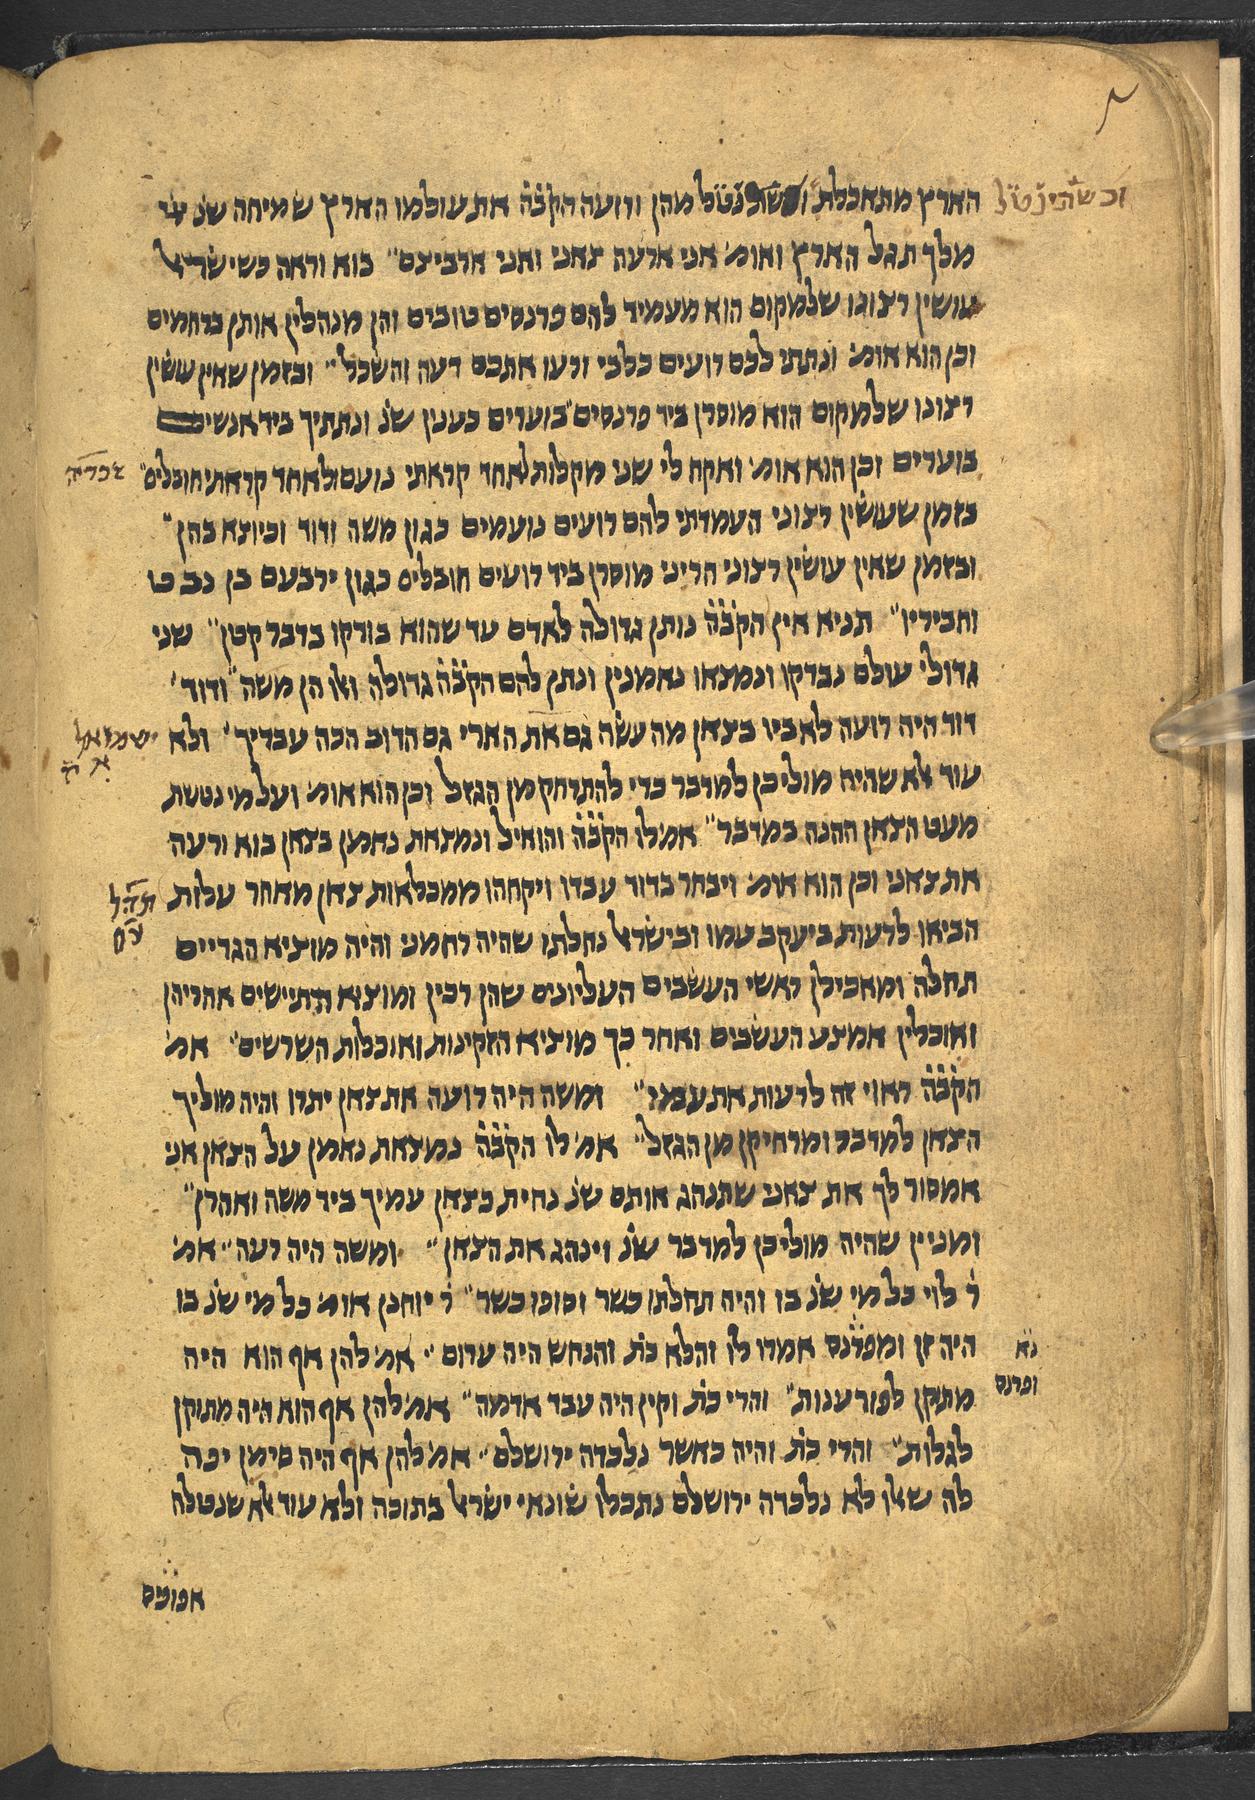 הארץ מתאכלת וכשתנטל מהן ורועה הקב֗ה֗ את עולמו הארץ שמיחה שנ֗ י֗י֗
וכשתינטל
מלך תגל הארץ ואומ׳ אני ארעה צאני ואני ארביצם״ בוא וראה כשישראל
עושין רצונו שלמקום הוא מעמיד להם פרנסים טובים והן מנהלין אותן ברחמים
וכן הוא אומ׳ ונתתי לכם רועים כלבי ורעו אתכם דעה והשכל״ ובזמן שאין עושין
רצונו שלמקום הוא מוסרן ביד פרנסים״בוערים כענין שנ֗ ונתתיך ביד אנשים
בוערים וכן הוא אומ׳ ואקח לי שני מקלות לאחד קראתי נועם ולאחד קראתי חובלים״
זכריה
בזמן שעושין רצוני העמדתי להם רועים נועמים כגון משה ודוד וכיוצא בהן״
ובזמן שאין עושין רצוני הריני מוסרן ביד רועים חובלים כגון ירבעם בן נבט
וחביריו״ תניא אין הקב֗ה֗ נותן גדולה לאדם עד שהוא בודקו בדבר קטן״ שני
גדולי עולם נבדקו ונמצאו נאמנין ונתן להם הקב֗ה֗ גדולה ואלו הן משה״ודוד׳
דוד היה רועה לאביו בצאן מה עשה גם את הארי גם הדוב הכה עבדיך׳ ולא
שמואל
א יז
עוד אלא שהיה מוליכן למדבר כדי להתרחק מן הגזל וכן הוא אומ׳ ועל מי נטשת
מעט הצאן ההנה במדבר״ אמ׳לו הקב֗ה֗ והואיל ונמצאת נאמן בצאן בוא ורעה
את צאני וכן הוא אומ׳ ויבחר בדוד עבדו ויקחהו ממכלאות צאן מאחר עלות
תהל
עח
הביאו לרעות ביעקב עמו ובישראל נחלתו שהיה רחמני והיה מוציא הגדיים
תחלה ומאכילן ראשי העשבים העליונים שהן רכין ומוציא התיישים אחריהן
ואוכלין אמצע העשבים ואחר כך מוציא הזקינות ואוכלות השרשים׳ אמ׳
הקב֗ה֗ ראוי זה לרעות את עמי״ ומשה היה רועה את צאן יתרו והיה מוליך
הצאן למדבר ומרחיקן מן הגזל״ אמ׳ לו הקב֗ה֗ נמצאת נאמן על הצאן אני
אמסור לך את צאני שתנהג אותם שנ֗ נחית כצאן עמיך ביד משה ואהרן״
ומניין שהיה מוליכן למדבר שנ֗ וינהג את הצאן״ ומשה היה רעה״ אמ׳
ר֗ לוי כל מי שנ֗ בו והיה תחלתו כשר וסופו כשר״ ר֗ יוחנן אומ׳ כל מי שנ֗ בו
היה זן ומפרנס אמרו לו והלא כת֗ והנחש היה ערום׳ אמ׳ להן אף הוא היה
נ״א
ופרנס
מתקן לפורענות״ והרי כת֗ וקין היה עבד אדמה״ אמ׳ להן אף הוא היה מתוקן
לגלות״ והרי כת֗ והיה כאשר נלכדה ירושלם״ אמ׳ להן אף היה סימן יפה
לה שאלו לא נלכדה ירושלם נתכלו שונאי ישראל בתוכה ולא עוד אלא שנטלה
אפופיס